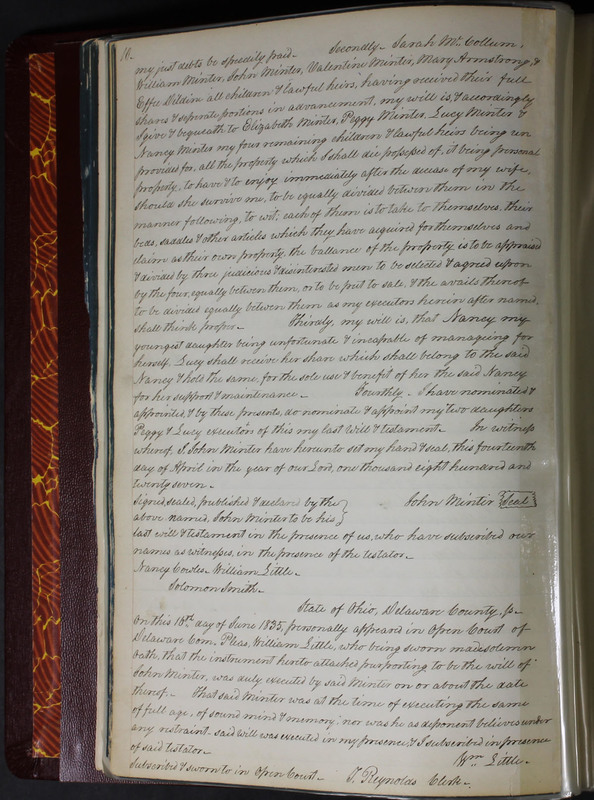 10.
my just debts be speedily paid. Secondly. Sarah McCollum,
William Minter, John Minter, Valentine Minter, Mary Armstrong, &
Effee Dildine all children & lawful heirs, having received their full
shares & seperate portions in advancement, my will is, & accordingly
I give & bequeath to Elizabeth Minter, Peggy Minter, Lucy Minter &
Nancy Minter my four remaining children & lawful heirs being un
provided for, all the property which I shall die possessed of, it being personal
property, to have & to enjoy immediately after the decease of my wife,
should she survive me, to be equally divided between them in the
manner following, to wit, each of them is to take to themselves, their
beds, saddles & other articles which they have acquired for themselves and
claim as their own property, the ballance of the property is to be appraised
& divided by three judicious & disinterested men to be selected & agreed upon
by the four, equally between them, or to be put to sale, & the avails thereof
to be divided equally between them as my executors herein after named,
shall think proper. Thirdly, my will is, that Nancy my
youngest daughter being unfortunate & incapable of managing for
herself, Lucy shall receive her share which shall belong to the said
Nancy & hold the same, for the sole use & benefit of her the said Nancy
for her support & maintenance. Fourthly. I have nominated &
appointed, & by these presents, do nominate & appoint my two daughters
Peggy & Lucy executors of this my last Will & testament. In witness
whereof, I, John Minter have hereunto set my hand & seal, this fourteenth
day of April in the year of our Lord, one thousand eight hundred and
twenty seven.
Signed, sealed, published & declared by the } John Minter Seal
above named, John Minter to be his }
last will & testament in the presence of us, who have subscribed our
names as witnesses, in the presence of the testator.
Nancy Cowles. William Little.
Solomon Smith.
State of Ohio, Delaware County, ss.
On this 16th day of June 1835, personally appeared in Open Court of
Delaware Com. Pleas, William Little, who being sworn made solemn
oath, that the instrument hereto attached, purporting to be the will of
John Minter, was duly executed by said Minter on or about the date
thereof. That said Minter was at the time of executing the same
of full age, of sound mind & memory, nor was he as deponent believes under
any restraint. said Will was executed in my presence, & I subscribed in presence
of said testator. Wm. Little.
Subscribed & sworn to in Open Court. T. Reynolds Clerk.